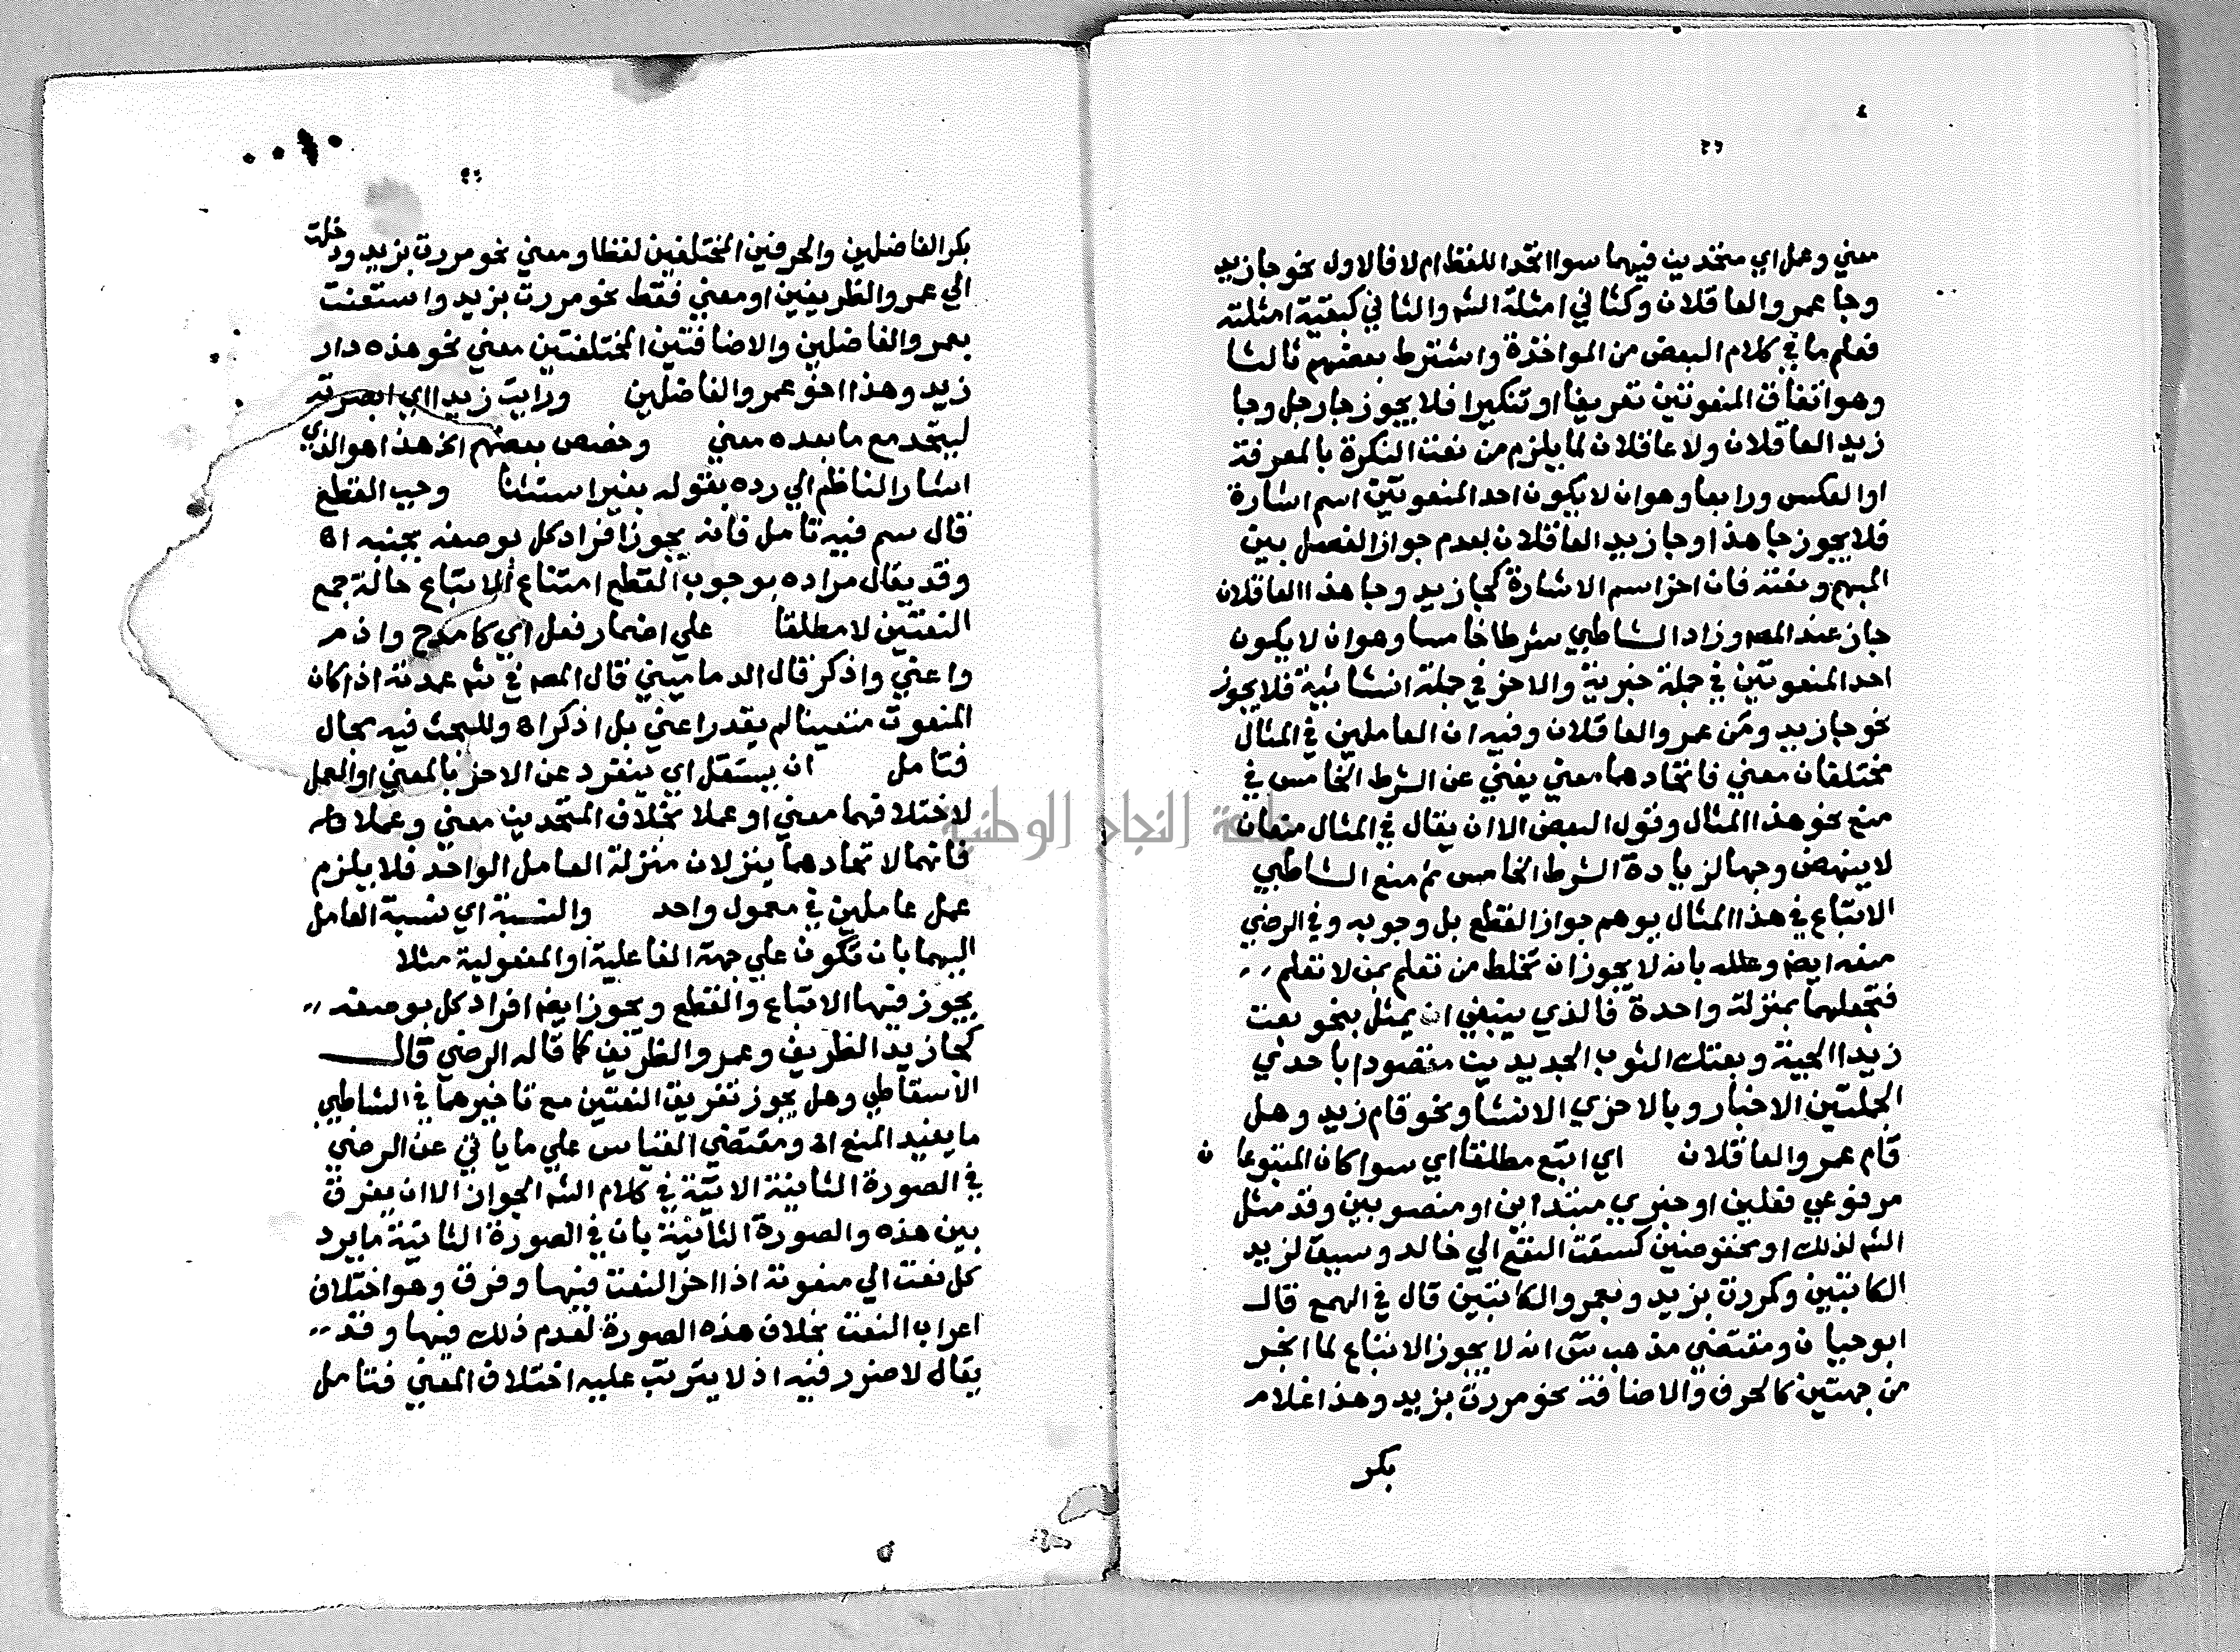 معني وعمل اي متحدين فيهما سوا اتحد اللفظ ام لا فالاول نحو جا زيد
وجا عمر والعاقلان وكثاني امثلة الشم والثاني كبقية امثلته
فعلم ما في كلام البعض من المواخذة واشترط بعضهم ثالثا
وهو اتفاق المنعوتين تعريفا او تنكيرا فلا يجوز جا رجل وجا
زيد العاقلان ولا عاقلان لما يلزم من نعت النكرة بالمعرفة
او العكس ورابعا وهو ان لا يكون احد المنعوتين اسم اشارة
فلا يجوز جا هذا وجا زيد العاقلان لعدم جواز الفصل بين
المبهم ونعته فان اخر اسم الاشارة كجا زيد وجا هذا العاقلان
جاز عند المصم وزاد الشاطبي شرطا خامسا وهو ان لا يكون
احد المنعوتين في جملة خبرية والاخر في جملة انشائية فلا يجوز
نحو جا زيد ومن عمر والعاقلان وفيه ان العاملين في المثال
مختلفان معني فاتحادهما معني يغني عن الشرط الخامس في
منع نحو هذا المثال وقول البعض الا ان يقال في المثال منعان
لا ينهض وجها لزيادة الشرط الخامس ثم منع الشاطبي
الاتباع في هذا المثال يوهم جواز القطع بل وجوبه وفي الرضي
منعه ايضم وعلله بانه لا يجوز ان تخلط من تعلم بمن لا تعلم
فتجعلهما بمنزلة واحدة فالذي ينبغي ان يمثل بنحو بعت
زيدا الجبة وبعتك الثوب الجديدين مقصودا باحدي
الجملتين الاخبار وبالاخري الانشا ونحو قام زيد وهل
قام عمر والعاقلان اي اتبع مطلقا اي سوا كان المتبوعان
مرفوعي فعلين او خبري مبتداين او منصوبين وقد مثل
الشم لذلك او مخفوضين كسقت النفع الي خالد وسيق لزيد
الكاتبين وكمررت بزيد وبعمر والكاتبين قال في الهمع قال
ابو حيان ومقتضي مذهب س انه لا يجوز الاتباع لما انجر
من جهتين كالحرف والاضافة نحو مررت بزيد وهذا غلام
بكر
بكر الفاضلين والحرفين المختلفين لفظا ومعني نحو مررت بزيد ودخلت
الي عمر والظريفين او معني فقط نحو مررت بزيد واستعنت
بعمر والفاضلين والاضافتين المختلفتين معني نحو هذه دار
زيد وهذا اخو عمر والفاضلين ورايت زيدا اي ابصرته
ليتحد مع ما بعده معني وخصص بعضهم الخ هذا هو الذي
اشار الناظم الي رده بقوله بغير استثنا وجب القطع
قال سم فيه تامل فانه يجوز افراد كل بوصفه بجنبه اه
وقد يقال مراده بوجوب القطع امتناع الاتباع حالة جمع
النعتين لا مطلقا علي اضمار فعل اي كامدح واذم
واعني واذكر قال الدماميني قال المصم في شم عمدته اذا كان
المنعوت متعينا لم يقدر اعني بل اذكر اه وللبحث فيه مجال
فتامل ان يستقل اي ينفرد عن الاخر بالمعني او العمل
لاختلافهما معني او عملا بخلاف المتحدين معني وعملا
فانهما لاتحادهما ينزلان منزلة العامل الواحد فلا يلزم
عمل عاملين في معمول واحد والنسبة اي نسبة العامل
اليهما بان تكون علي جهة الفاعلية او المفعولية مثلا
يجوز فيها الاتباع والقطع ويجوز ايضم افراد كل بوصفه
كجا زيد الظريف وعمر والظريف كما قاله الرضي قال
الاسقاطي وهل يجوز تفريق النعتين مع تاخيرهما في الشاطبي
ما يفيد المنع اه ومقتضي القياس علي ما ياتي عن الرضي
في الصورة الثانية الاتية في كلام الشم الجواز الا ان يفرق
بين هذه والصورة الثانية بان في الصورة الثانية ما يرد
كل نعت الي منعوته اذا اخر النعت فيها وفرق وهو اختلاف
اعراب النعت بخلاف هذه الصورة لعدم ذلك فيها وقد
يقال لا ضرر فيه اذ لا يترتب عليه اختلاف المعني فتامل
جامعة النجاح الوطنية